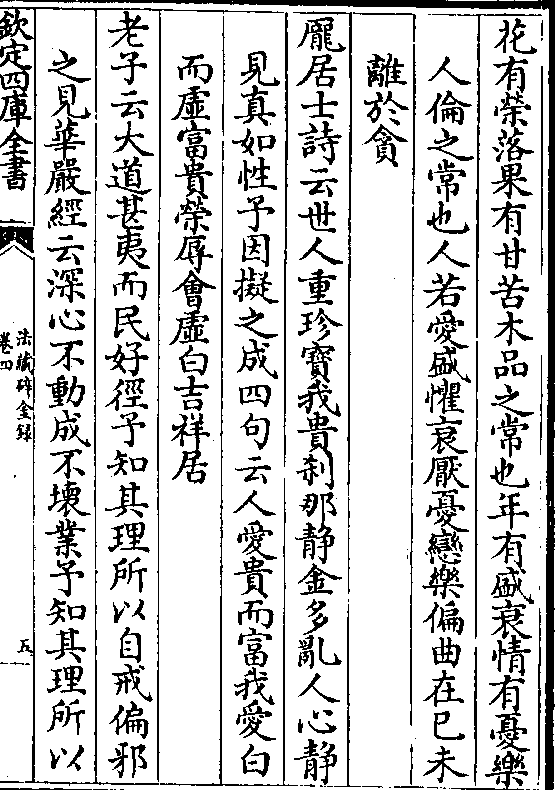 花有榮落果有甘苦木品之常也年有盛衰情有憂樂
人倫之常也人若愛盛懼衰厭憂戀樂偏曲在已未
離於貪
龎居士詩云世人重珍寶我貴刹那静金多亂人心静
見真如性予因擬之成四句云人愛貴而富我愛白
而虛富貴榮辱會虛白吉祥居
老子云大道甚夷而民好徑予知其理所以自戒偏邪
之見華嚴經云深心不動成不壞業予知其理所以
欽定四庫全書
法藏碎金録
卷四
五